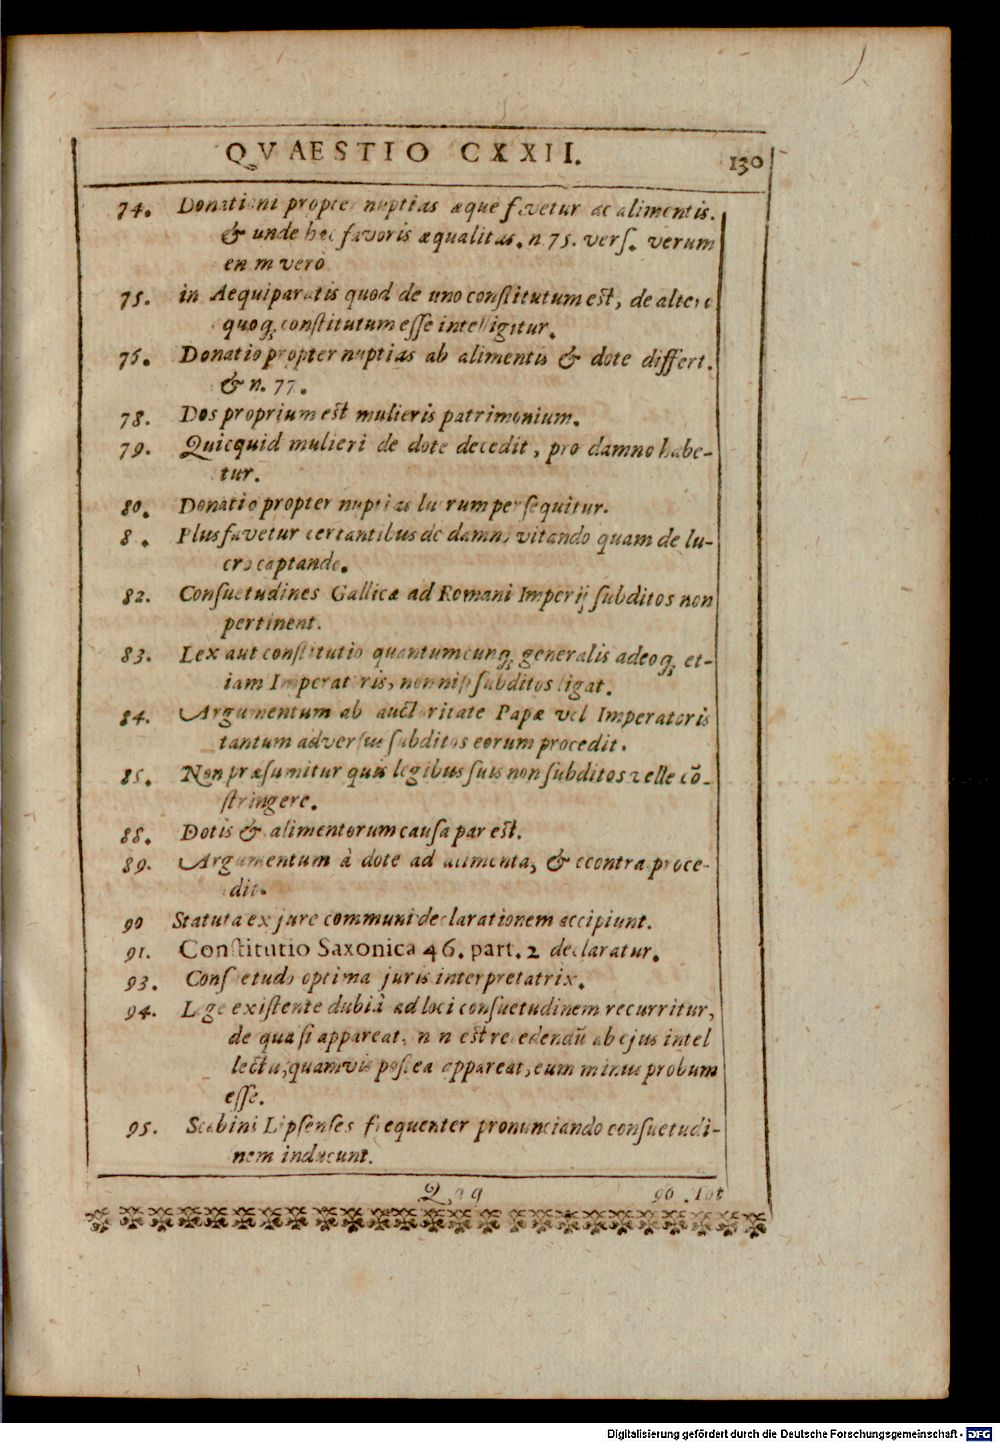 QVAESTIO CXXII.
130
74. Donationi propter nuptias æque favetur ac alimentis.
& unde hec favoris æqualitas. n 75. vers. verum
en m vero
75. in Aequiparatis quod de uno constitutum est, de altero
quoq; constitutum esse intelligitur.
75. Donatio propter nuptias ab alimentis & dote differt.
& n. 77.
78. Dos proprium est mulieris patrimonium.
79. Quicquid mulieri de dote decedit, pro damno habe-
tur.
80. Donatio propter nuptias lucrum persequitur.
8 . Plus favetur certantibus de damno vitando quam de lu-
cro captando.
82. Consuetudines Gallicæ ad Romani Imperij subditos non
pertinent.
83. Lex aut constitutio quantumcunq; generalis adeoq; et-
iam Imperatoris, non nisi subditos ligat.
84. Argumentum ab auctoritate Papæ vel Imperatoris
tantum adversus subditos eorum procedit.
85. Non præsumitur quis legibus suis non subditos velle cō-
stringere.
88. Dotis & alimentorum causa par est.
89. Argumentum à dote ad alimenta, & econtra proce-
dit.
90 Statuta ex jure communi declarationem accipiunt.
91. Constitutio Saxonica 46. part. 2 declaratur.
93. Consuetudo optima juris interpretatrix.
94. Lege existente dubiâ ad loci consuetudinem recurritur,
de qua si appareat, non est recedendū ab ejus intel
lectu, quamvis postea appareat, eum minus probum
esse.
95. Scabini Lipsenses frequenter pronunciando consuetudi-
nem inducunt.
Qqq
96. Tot
Digitalisierung gefördert durch die Deutsche Forschungsgemeinschaft - DFG